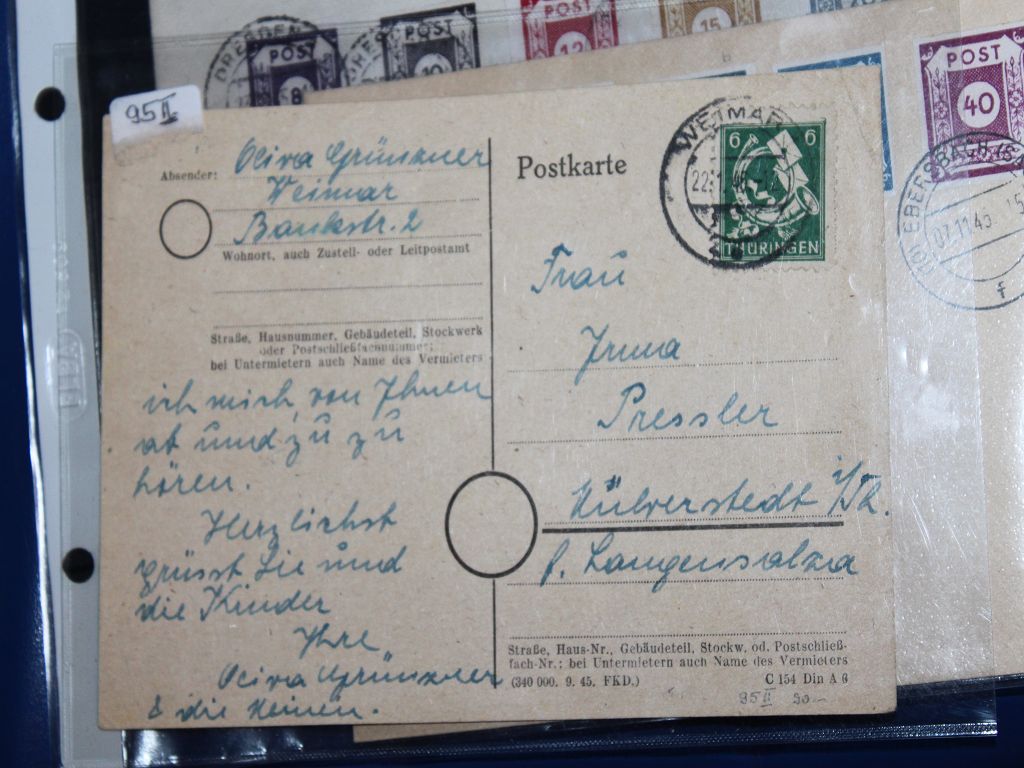 DRESDEN
POST
8
POST
10
POST
12
15
POST
40
EBERSBACH (S
07.11.45
f
95 II
Absender: Oliva Grünzner
Weimar
Bankstr. 2
Wohnort, auch Zustell- oder Leitpostamt
Straße, Hausnummer, Gebäudeteil, Stockwerk
oder Postschließfachnummer;
bei Untermietern auch Name des Vermieters
ich mich, von Ihnen
ab und zu zu
hören.
Herzlichst
grüsst Sie und
die Kinder
Ihre
Oliva Grünzner
& die Kleinen.
Postkarte
WEIMAR
6 6
THÜRINGEN
Frau
Irma
Pressler
Külverstedt i/Th.
b. Langensalza
Straße, Haus-Nr., Gebäudeteil, Stockw. od. Postschließ-
fach-Nr.; bei Untermietern auch Name des Vermieters
(340 000. 9. 45. FKD.) C 154 Din A 6
95 II 90.-